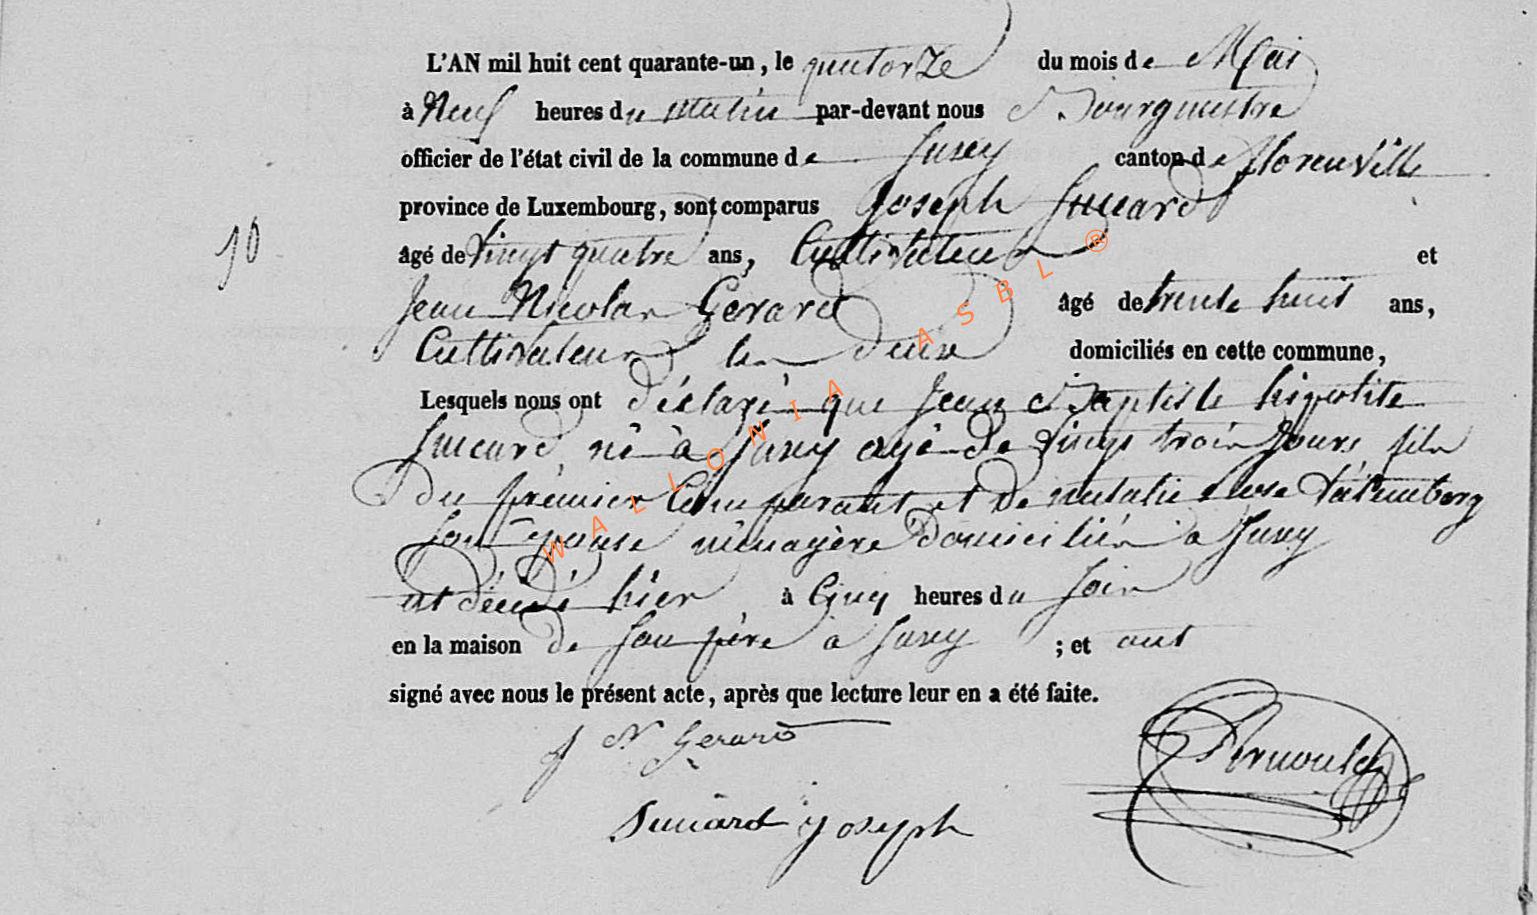 L'AN mil huit cent quarante-un, le quatorze du mois de Mai
à Neuf heures du matin par-devant nous Bourgmestre
officier de l'état civil de la commune de Suxy canton de florenville
10 province de Luxembourg, sont comparus Joseph Suuard
âgé de Vingt quatre ans, Cultivateur et
Jean Nicolas Gerard âgé de trente huit ans,
Cultivateur les deux domiciliés en cette commune,
Lesquels nous ont déclaré que Jean Baptiste hipolite
Suuard né à Suxy agé de Vingt trois Jours fils
du premier Comparant et de natalie rose
son épouse ménagère domiciliés à Suxy
est décédé hier à Cinq heures du soir
en la maison de son père a Suxy ; et ont
signé avec nous le présent acte, après que lecture leur en a été faite.
J N Gerard
Suuard Joseph
Arnould
WALLONIA ASBL ®